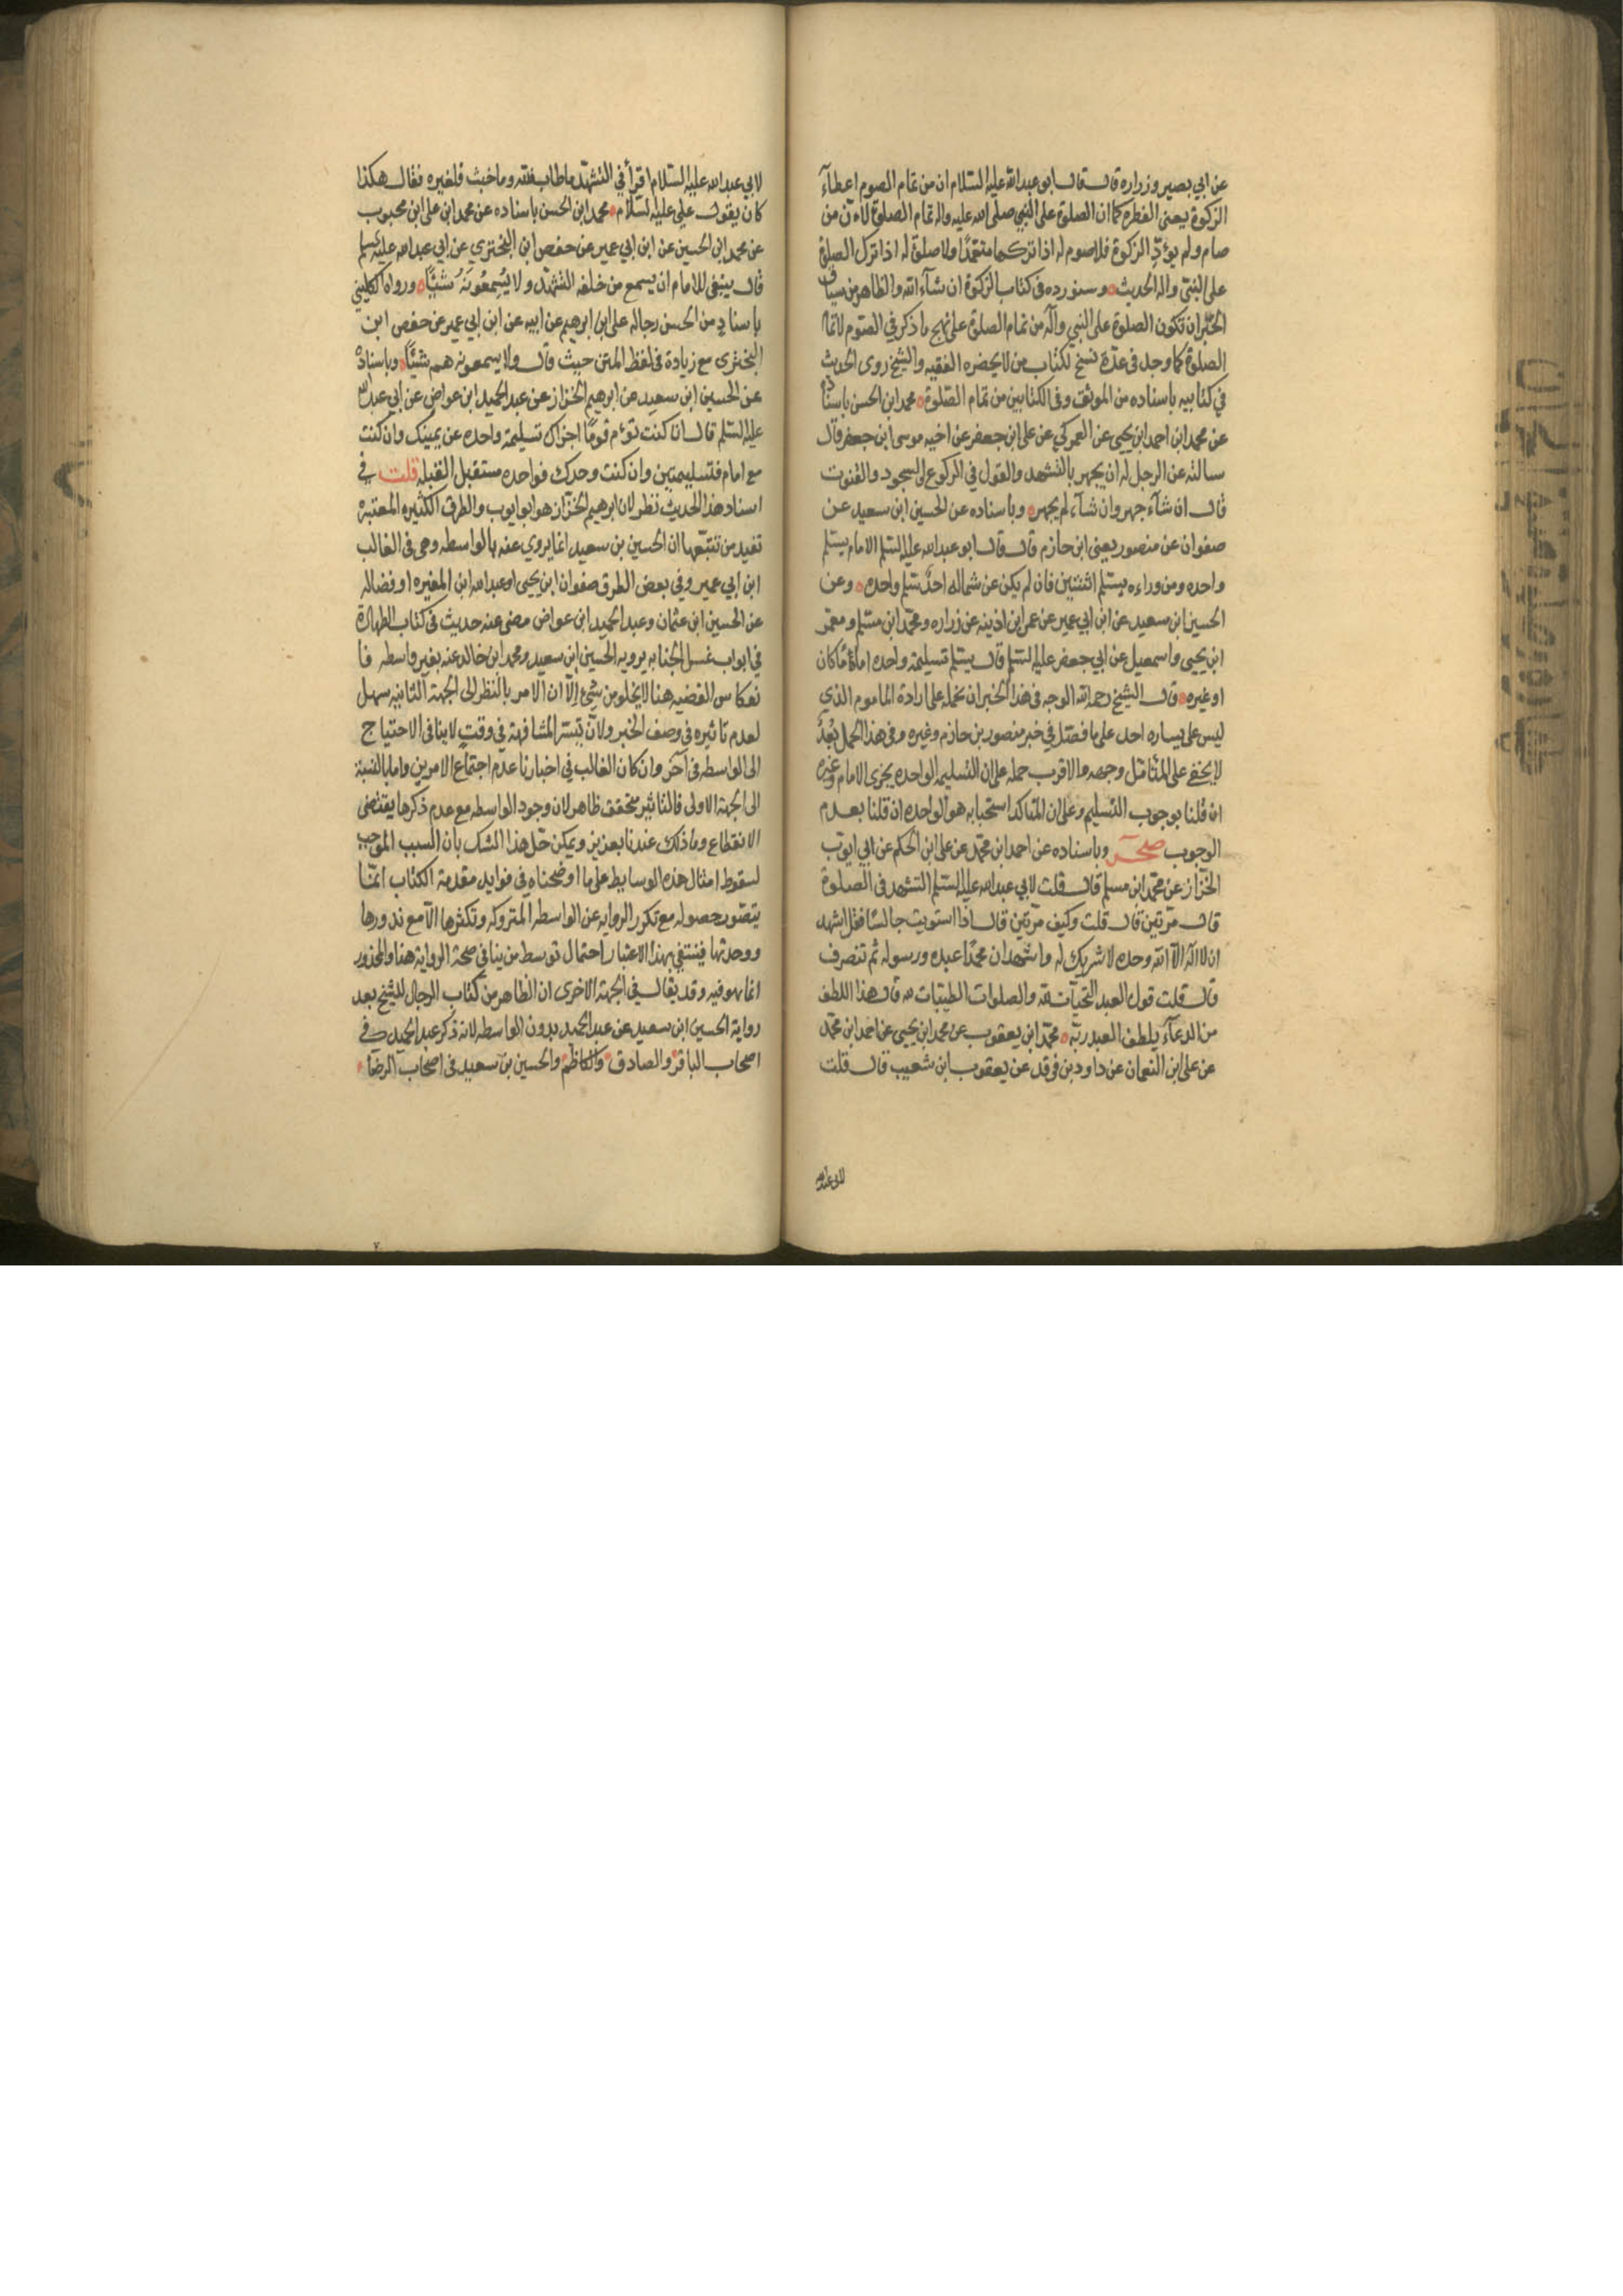 عن ابي بصير وزراره قال قال ابو عبدالله عليه السلام ان من تمام الصوم اعطآء
الزكوة يعني الفطره كما ان الصلوة على النبي صلى الله عليه واله تمام الصلوة لان من
صام ولم يؤدّ الزكوة فلا صوم له اذا تركها متعمّدًا ولا صلوة له اذا ترك الصلوة
على النبيّ واله الحديث وسنورده في كتاب الزكوة ان شآء الله والظاهر من سياق
الخبر ان تكون الصلوة على النبي وآله من تمام الصلوة على نهج ما ذكر في الصّوم لاتمام
الصلوة كما وجد في عدّة نسخ لكتاب من لا يحضره الفقيه والشيخ روى الحديث
في كتابيه باسناده من الموثق وفي الكتابين من تمام الصّلوة محمد ابن الحسن باسناده
عن محمد ابن احمد ابن يحيى عن العمركي عن على ابن جعفر عن اخيه موسى ابن جعفر قال
سالته عن الرجل له ان يجهر بالتشهد والقول في الركوع والسجود والقنوت
قال ان شآء جهر وان شآء لم يجهر وباسناده عن الحسين ابن سعيد عن
صفوان عن منصور يعني ابن حازم قال قال ابو عبدالله عليه السّلم الامام يسلّم
واحده ومن وراءه يسلّم اثنتين فان لم يكن عن شماله احدٌ سلّم واحده وعن
الحسين ابن سعيد عن ابن ابي عمير عن عمر ابن اذينه عن زراره ومحمّد ابن مسلم ومعمر
ابن يحيى واسمعيل عن ابي جعفر عليه السّلم قال يسلّم تسليمة واحده امامًا كان
او غيره قال الشيخ رحمه الله الوجه في هذا الخبر ان نحمله على ارادة الماموم الذي
ليس على يساره احد على ما فصّل في خبر منصور بن حازم وغيره وفي هذا الحمل بُعدٌ
لا يخفى على المتامّل وجهه والاقرب حمله على ان التسليمه الواحده يجزى الامام وغيره
ان قلنا بوجوب التسليم وعلى ان المتاكد استحبابه هو الواحده ان قلنا بعدم
الوجوب صحر وباسناده عن احمد ابن محمّد عن على ابن الحكم عن ابي ايوّب
الخزّاز عن محمّد ابن مسلم قال قلت لابي عبدالله عليه السّلم التشهد في الصلوة
قال مرّتين قال قلت وكيف مرّتين قال اذا استويت جالسًا فقل اشهد
ان لا اله الاّ الله وحده لا شريك له واشهد ان محمّدًا عبده ورسوله ثم تنصرف
قال قلت قول العبد التحيّات لله والصلوات الطيّبات لله قال هذا اللطف
من الدعآء يلطف العبد ربّه محمّد ابن يعقوب عن محمد ابن يحيى عن احمد ابن محمّد
عن على ابن النعمان عن داود بن فرقد عن يعقوب ابن شعيب قال قلت
لابي عبدالله
لابي عبد الله عليه السّلام اقرأ في التشهّد ما طاب فلله وما خبث فلغيره فقال هكذا
كان يقول علي عليه السّلام محمد ابن الحسن باسناده عن محمد ابن على ابن محبوب
عن محمد ابن الحسين عن ابن ابي عمير عن حفص ابن البختري عن ابي عبد الله عليه السلم
قال ينبغي للامام ان يسمع من خلفه التشهّد ولا يُسمِعُونَهُ شَيئًا ورواه الكليني
باسناد من الحسن رجاله على ابن ابرهيم عن ابيه عن ابن ابي عمير عن حفص ابن
البختري مع زيادة في لفظ المتن حيث قال ولا يسمعونه هم شيئًا وباسناده
عن الحسين ابن سعيد عن ابرهيم الخزاز عن عبد الحميد ابن عواض عن ابي عبدالله
عليه السّلم قال ان كنت تؤم قومًا اجزاك تسليمة واحده عن يمينك وان كنت
مع امام فتسليمتين وان كنت وحدك فواحده مستقبل القبلة قلت في
اسناد هذا الحديث نظر لان ابرهيم الخزّاز هو ابو ايوب والطرق الكثيره المعتبره
تفيد من تتبّعها ان الحسين بن سعيد انما يروي عنه بالواسطه وهي في الغالب
ابن ابي عمير وفي بعض الطرق صفوان ابن يحيى او عبد الله ابن المغيره او فضاله
عن الحسين ابن عثمان وعبد الحميد ابن عواض مضى عنه حديث في كتاب الطهارة
في ابواب غسل الجنابه يرويه الحسين ابن سعيد ومحمد ابن خالد عنه بغير واسطه فا
نعكاس القضيه هنا لا يخلو من شيء الاّ ان الامر بالنظر الى الجهة الثانيه سهل
لعدم تاثيره في وصف الخبر ولان تيسّر المشافهة في وقت لا ينافي الاحتياج
الى الواسطه في آخر وان كان الغالب في اخبارنا عدم اجتماع الامرين واما بالنسبة
الى الجهة الاولى فالتاثير متحقق ظاهر لان وجود الواسطه مع عدم ذكرها يقتضي
الانقطاع وما ذلك عندنا بعزيز ويمكن حلّ هذا الشك بان السبب الموجب
لسقوط امثال هذه الوسايط على ما اوضحناه في فوايد مقدمة الكتاب انمّا
يتصّور حصوله مع تكرر الروايه عن الواسطه المتروكه وتكثرها الاّ مع ندورها
ووحدتها فينتفي بهذا الاعتبار احتمال توسط من ينافي صحّة الروايه هنا والمحذور
انما هو فيه وقد يقال في الجهة الاخرى ان الظاهر من كتاب الرجال للشيخ بعد
رواية الحسين ابن سعيد عن عبد الحميد بدون الواسطه لانه ذكر عبد الحميد في
اصحاب الباقر والصادق والكاظم والحسين بن سعيد في اصحاب الرضا